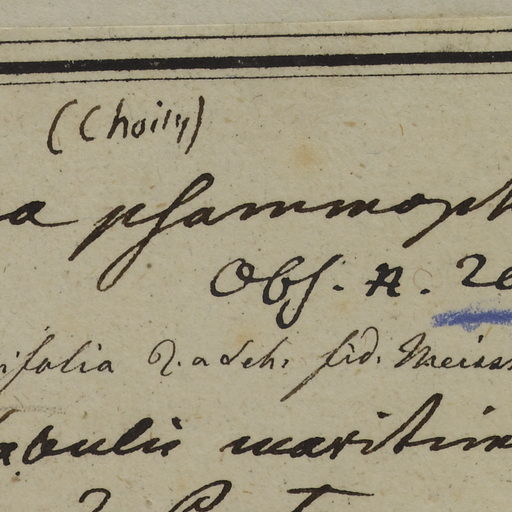 (Choisy)
a psammoph
Obs. n. 20
ifolia fid. Meiss
abulis maritim